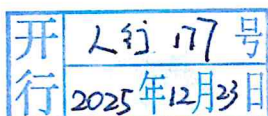 开 人行 177 号
行 2025年12月23日